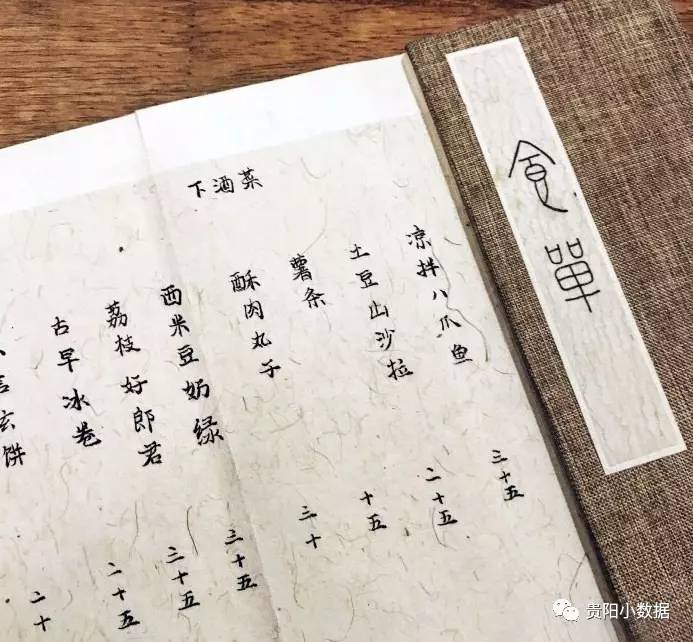 食單
下酒菜
凉拌八爪鱼 三十五
土豆山沙拉 二十五
薯条 十五
酥肉丸子 三十
西米豆奶绿 三十五
荔枝好郎君 三十五
古早冰卷 二十五
言玄饼 二十
贵阳小数据